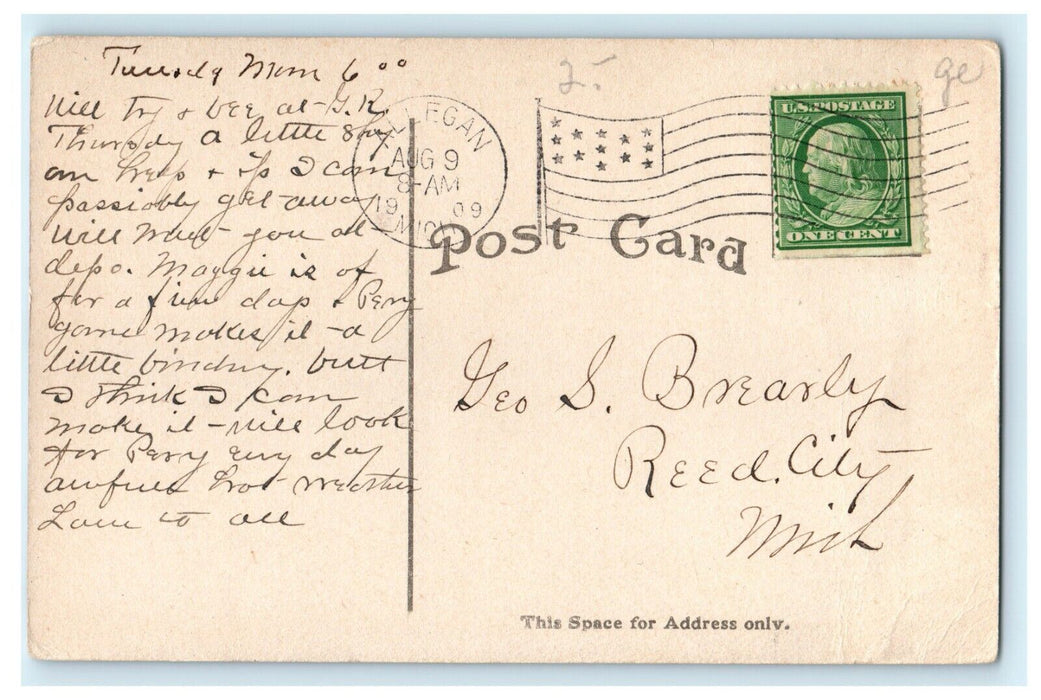 Tuesdy Morn 6 00
Will Try + bee at G.R.
Thursdy a little
on + if I can
passiobly get away
Will meet you at
depo. Maggie is of
for a few days + Perry
gone makes it a
little but
I think I can
make it - will look
for Perry evry day
awfuel hot weather
Love to all
25
ALLEGAN
AUG 9
8-AM
1909
MICH.
U.S. POSTAGE
ONE CENT
ge
Post Card
Geo S. Brearly
Reed. City
Mich
This Space for Address only.